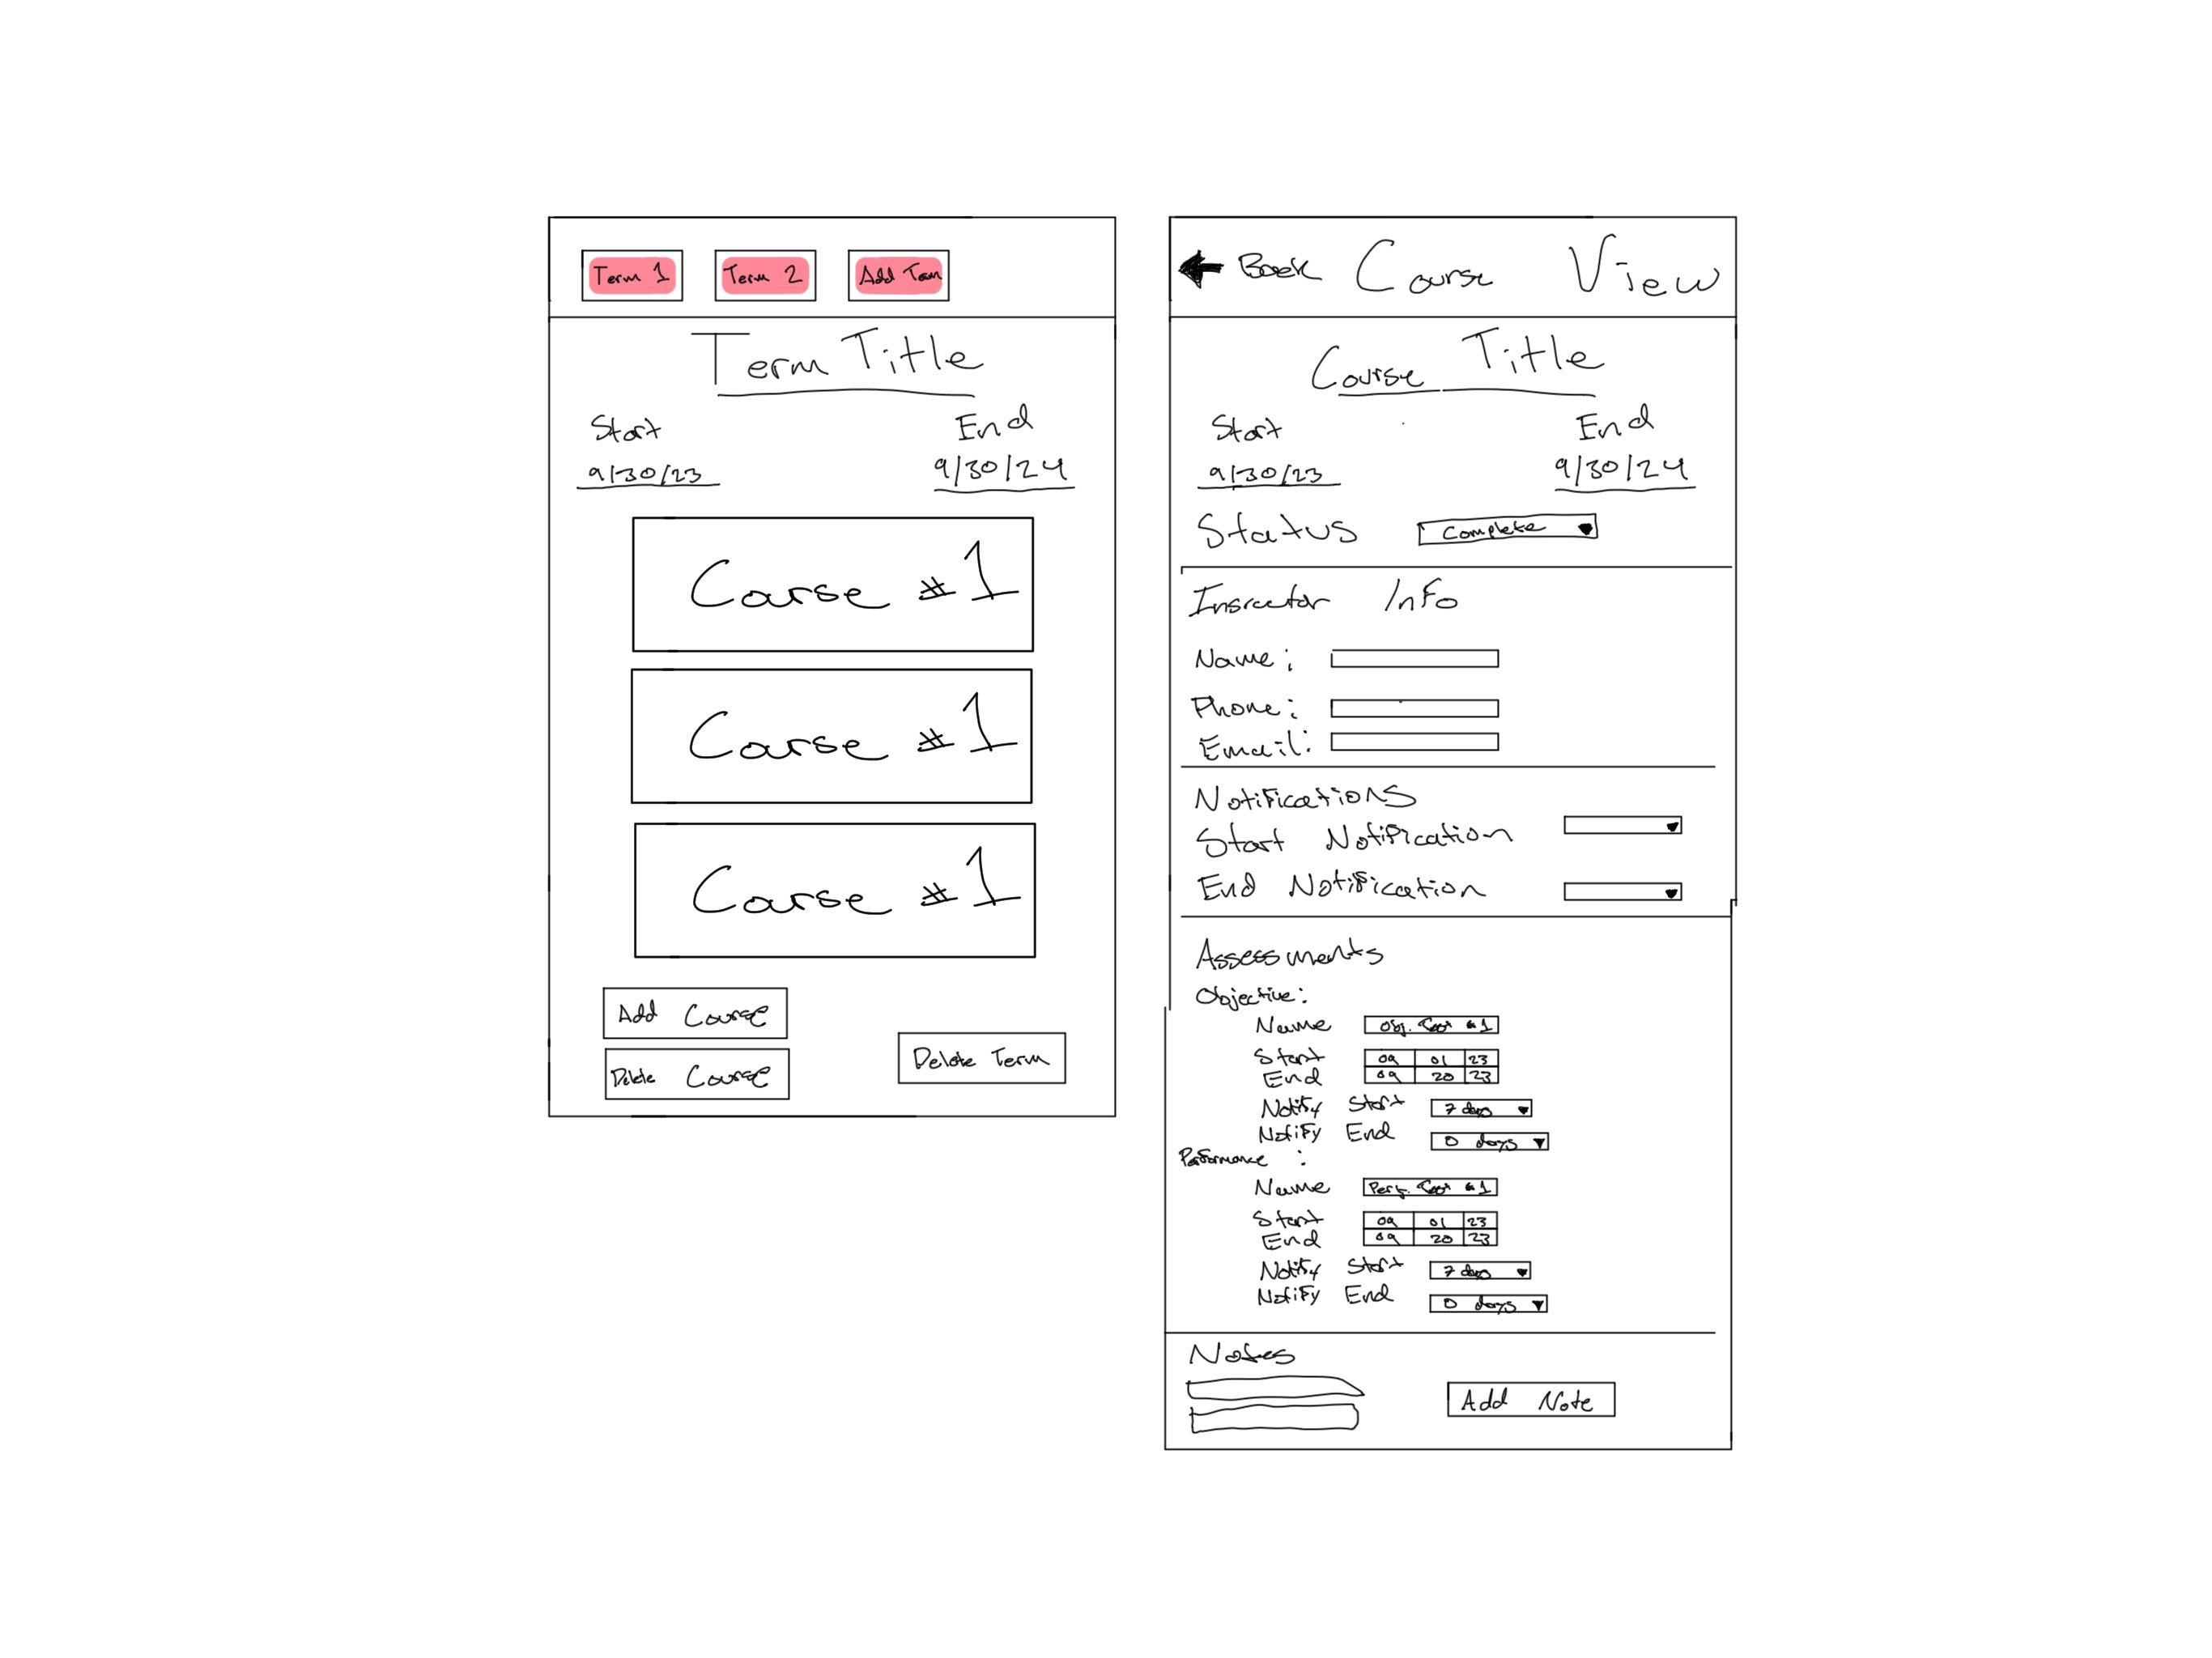 Term 1 Term 2 Add Term
Term Title
Start End
9/30/23 9/30/24
Course #1
Course #1
Course #1
Add Course
Delete Course
Delete Term
Back Course View
Course Title
Start End
9/30/23 9/30/24
Status Complete
Info
Name:
Phone:
Email:
Notifications
Start Notification
End Notification
Assessments
Objective:
Name Obj. #1
Start 09 01 23
End 09 20 23
Notify Start 7 days
Notify End 0 days
Performance :
Name Perf. #1
Start 09 01 23
End 09 20 23
Notify Start 7 days
Notify End 0 days
Notes
Add Note